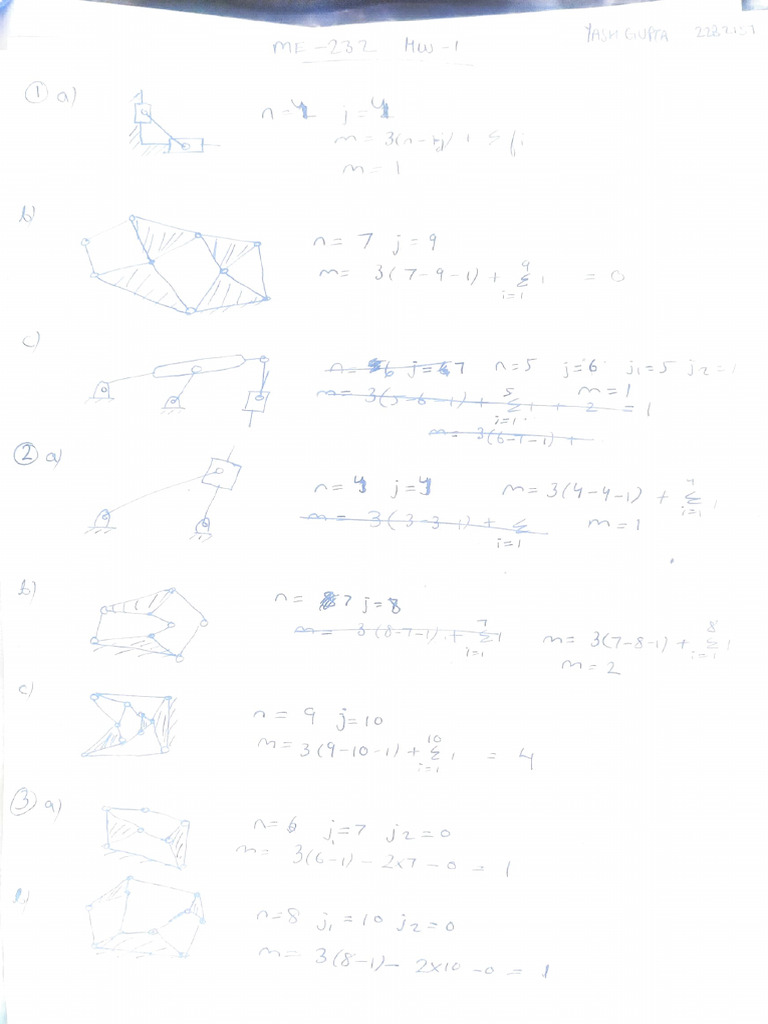 ME-232 HW-1
YASH GUPTA
① a)
n=4 j=4
m= 3(n-1-j) + Σfi
m= 1
b)
n= 7 j= 9
m= 3(7-9-1) + Σ 1 = 0
9
i=1
c)
n= 6 j= 7 n=5 j=6 j1=5 j2=1
m= 3(5-6-1) + Σ 1 + 2 = 1 m=1
5
i=1
m= 3(6-7-1) +
② a)
n=4 j=4 m=3(4-4-1) + Σ 1
i=1
m= 3(3-3-1) + Σ m=1
i=1
b)
n= 7 j=8
m= 3(8-7-1) + Σ 1 m= 3(7-8-1) + Σ 1
7 8
i=1 i=1
m= 2
c)
n= 9 j=10
m= 3(9-10-1) + Σ 1 = 4
10
i=1
③ a)
n=6 j1=7 j2=0
m= 3(6-1) - 2x7 - 0 = 1
b)
n=8 j1=10 j2=0
m= 3(8-1)- 2x10 -0 = 1